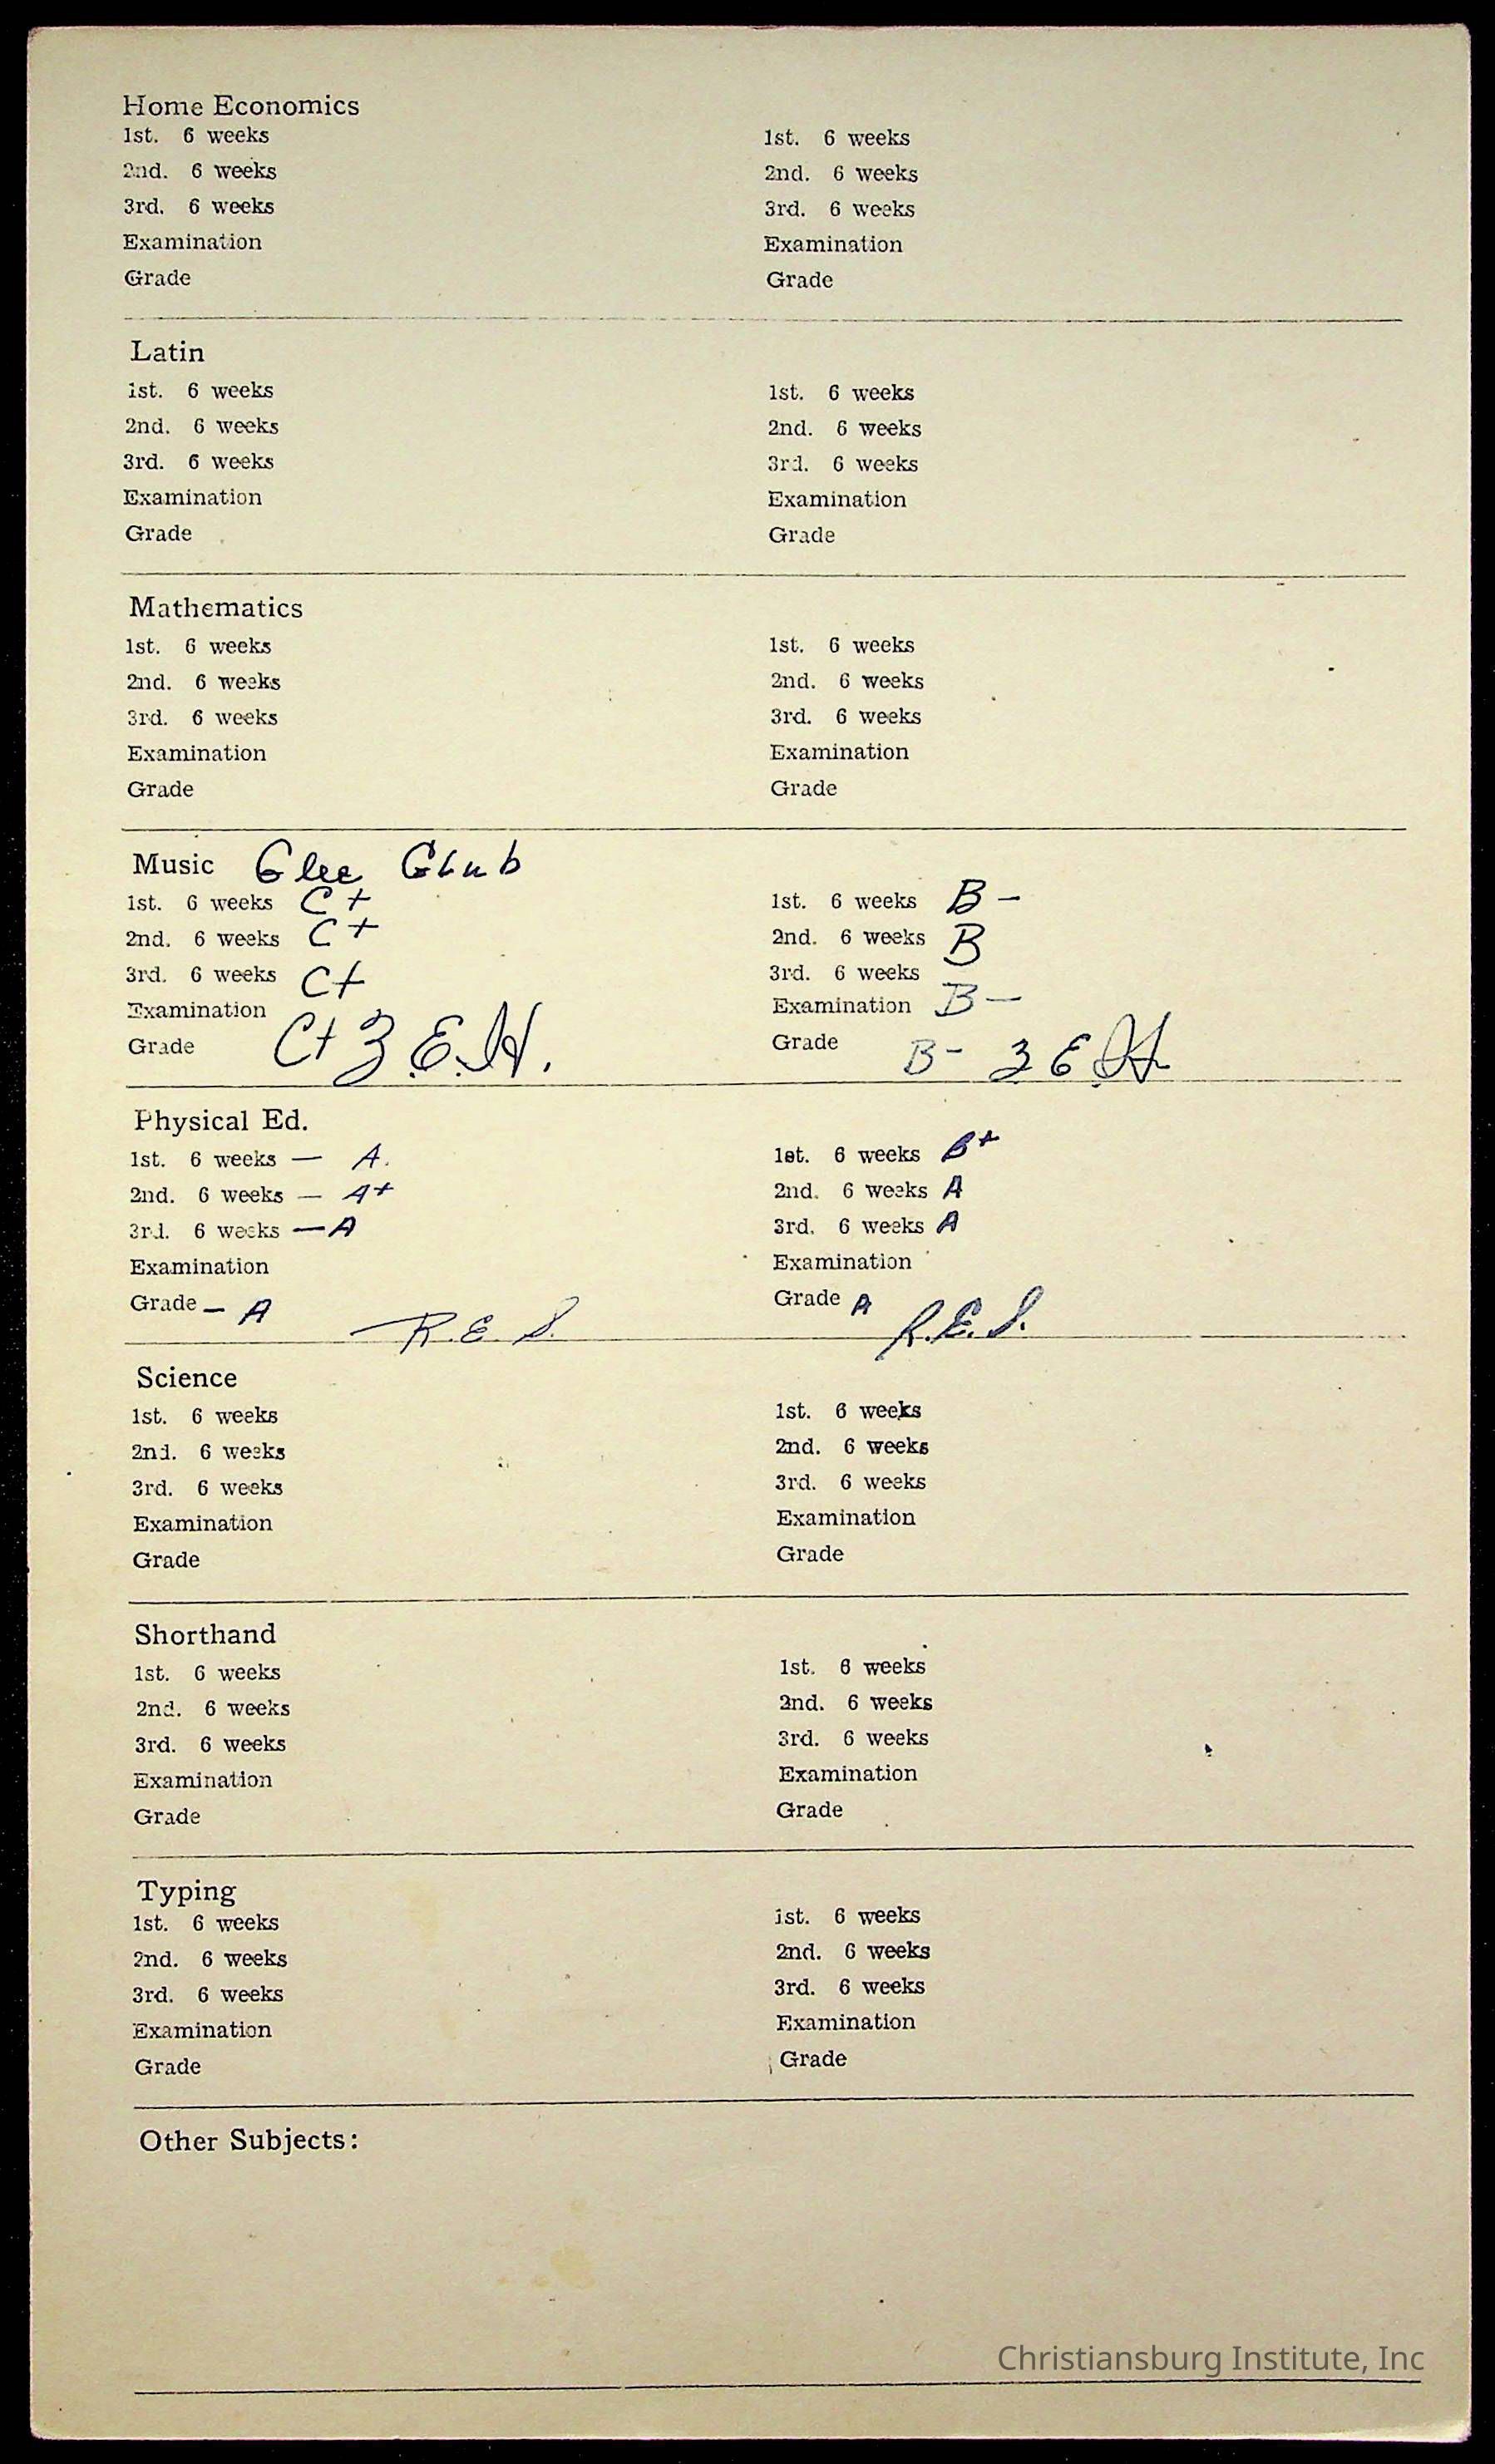 Home Economics
1st. 6 weeks 1st. 6 weeks
2nd. 6 weeks 2nd. 6 weeks
3rd. 6 weeks 3rd. 6 weeks
Examination Examination
Grade Grade
Latin
1st. 6 weeks 1st. 6 weeks
2nd. 6 weeks 2nd. 6 weeks
3rd. 6 weeks 3rd. 6 weeks
Examination Examination
Grade Grade
Mathematics
1st. 6 weeks 1st. 6 weeks
2nd. 6 weeks 2nd. 6 weeks
3rd. 6 weeks 3rd. 6 weeks
Examination Examination
Grade Grade
Music Glee Club
1st. 6 weeks C+ 1st. 6 weeks B-
2nd. 6 weeks C+ 2nd. 6 weeks B
3rd. 6 weeks C+ 3rd. 6 weeks
Examination Examination B-
Grade C+ Z.E.H. Grade B- Z E H
Physical Ed.
1st. 6 weeks — A. 1st. 6 weeks B+
2nd. 6 weeks — A+ 2nd. 6 weeks A
3rd. 6 weeks — A 3rd. 6 weeks A
Examination Examination
Grade - A R.E.S. Grade A R.E.S.
Science
1st. 6 weeks 1st. 6 weeks
2nd. 6 weeks 2nd. 6 weeks
3rd. 6 weeks 3rd. 6 weeks
Examination Examination
Grade Grade
Shorthand
1st. 6 weeks 1st. 6 weeks
2nd. 6 weeks 2nd. 6 weeks
3rd. 6 weeks 3rd. 6 weeks
Examination Examination
Grade Grade
Typing
1st. 6 weeks 1st. 6 weeks
2nd. 6 weeks 2nd. 6 weeks
3rd. 6 weeks 3rd. 6 weeks
Examination Examination
Grade Grade
Other Subjects:
Christiansburg Institute, Inc